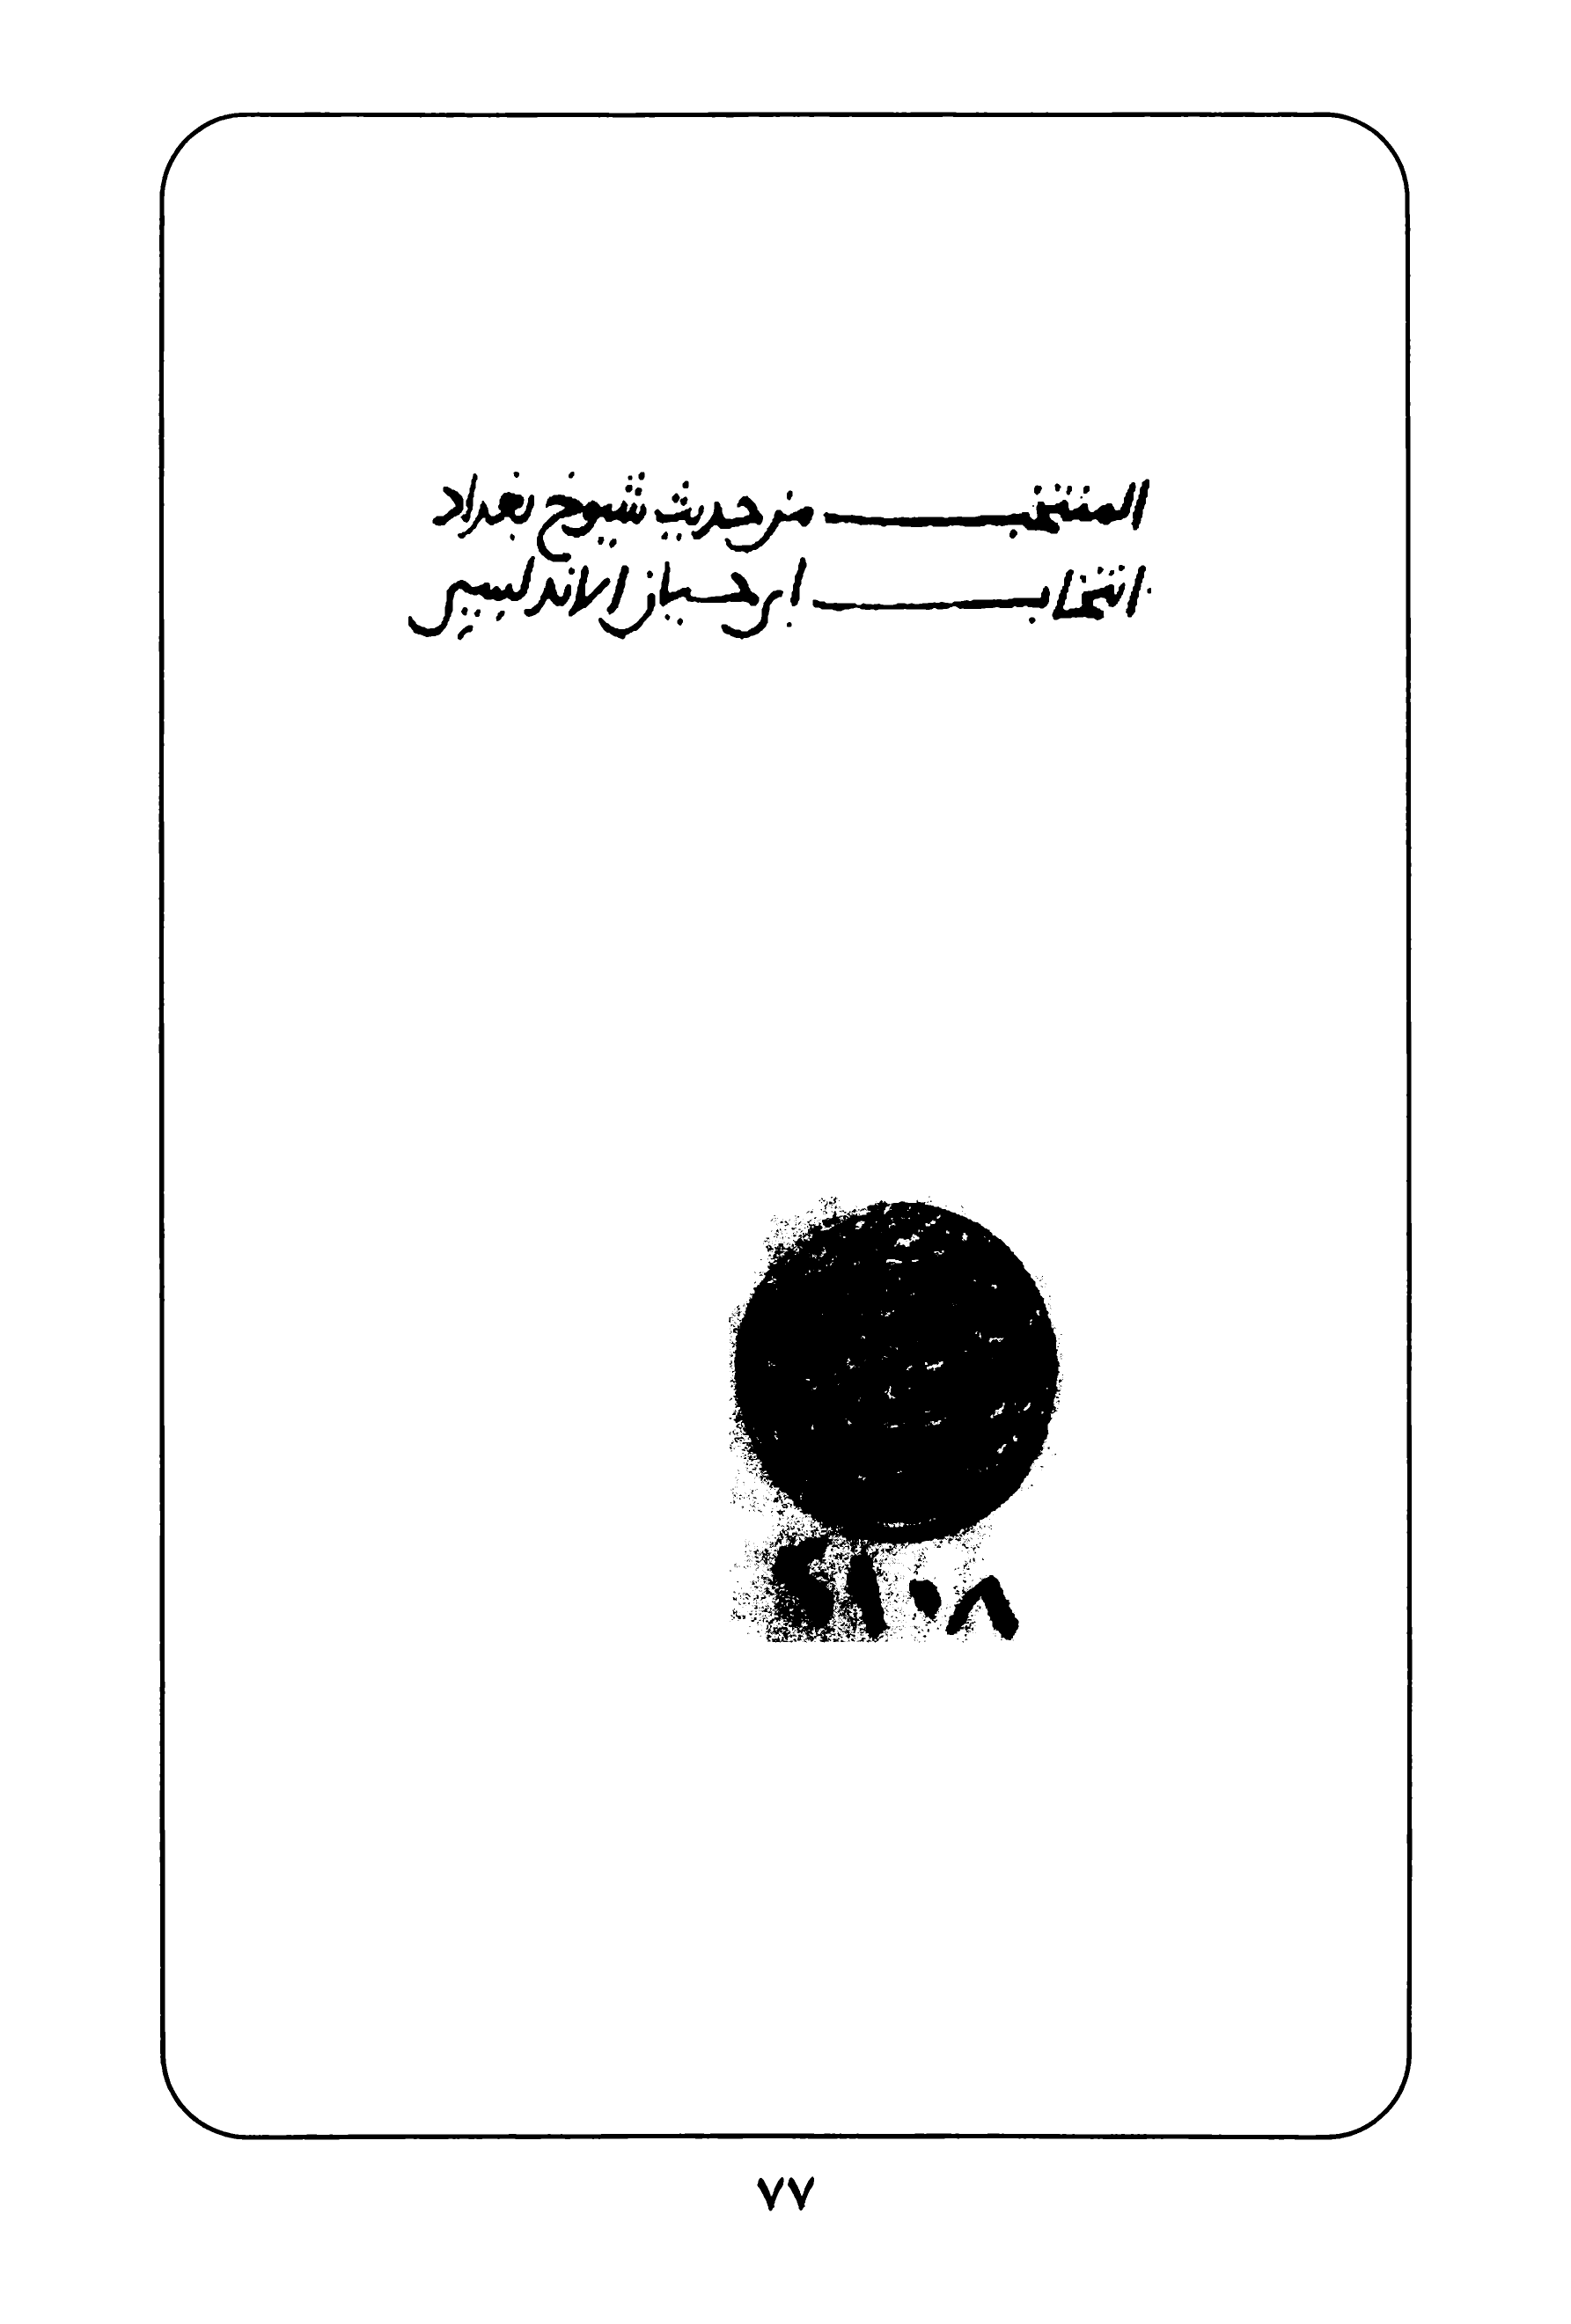 المنتخب من حديث شيوخ بغداد
انتخاب ابي حيان الاندلسي
٧٧